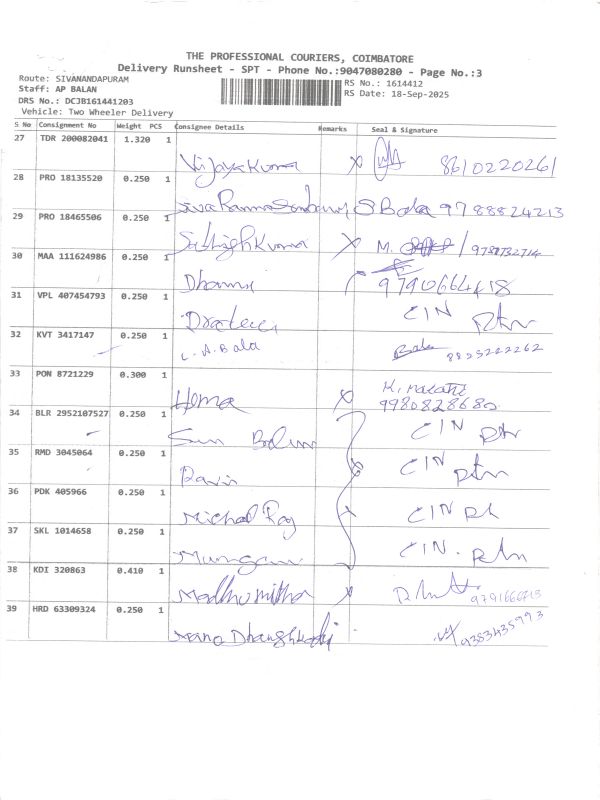 THE PROFESSIONAL COURIERS, COIMBATORE
Delivery Runsheet - SPT - Phone No.:9047080280 - Page No.:3
Route: SIVANANDAPURAM
RS No.: 1614412
Staff: AP BALAN
RS Date: 18-Sep-2025
DRS No.: DCJB161441203
Vehicle: Two Wheeler Delivery
S No Consignment No Weight PCS Consignee Details Remarks Seal & Signature
27 TDR 200082041 1.320 1
Vijaya Kumar 8610220261
28 PRO 18135520 0.250 1
S Bala 9788824213
29 PRO 18465506 0.250 1
M. 9788732714
30 MAA 111624986 0.250 1
9790664418
31 VPL 407454793 0.250 1
CIN Rtn
32 KVT 3417147 0.250 1
C.A.Bala Bala 8825222262
33 PON 8721229 0.300 1
Hema K. Malathi
9980828680
34 BLR 2952107527 0.250 1
CIN Rtn
35 RMD 3045064 0.250 1
Ravi CIN Rtn
36 PDK 405966 0.250 1
Michal Raj CIN
37 SKL 1014658 0.250 1
Murugan CIN. Rtn
38 KDI 320863 0.410 1
Madhumitha
39 HRD 63309324 0.250 1
9383435993